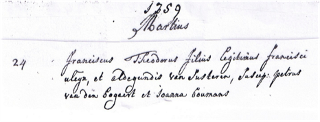 1759
Martius
24 franciscus Theodorus filius legitimus francisci
uleyn, et aldegundis van Susteren, Suscep: petrus
van den bogaert et Joanna boumans